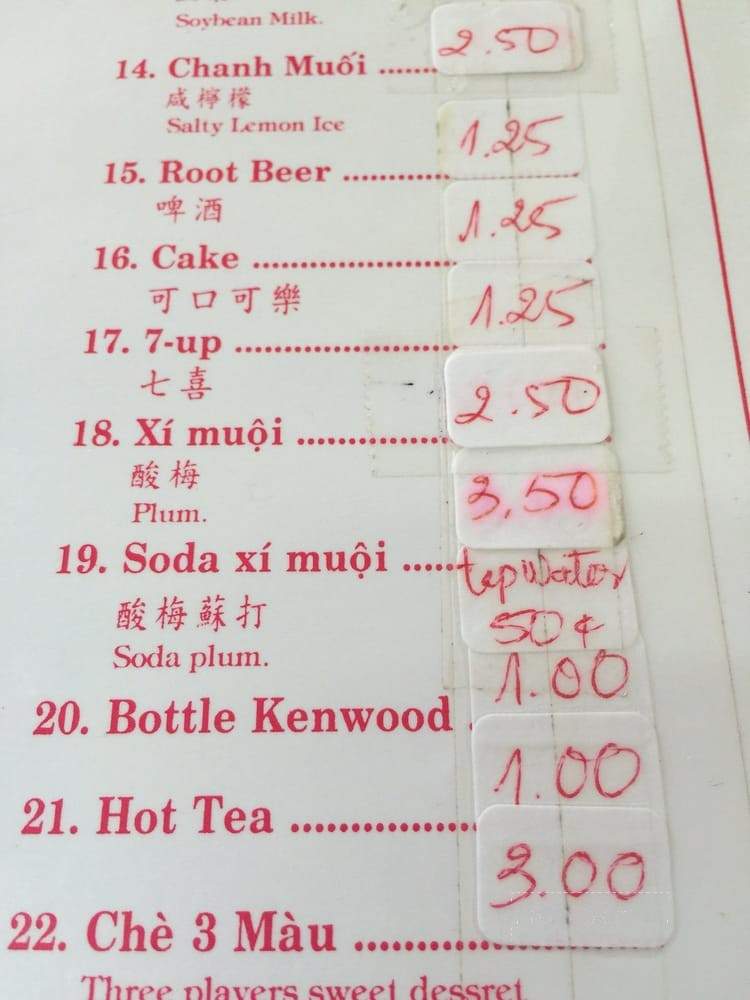 Soybean Milk.
14. Chanh Muối ....... 2.50
咸檸檬
Salty Lemon Ice
1.25
15. Root Beer ..................
啤酒
1.25
16. Cake ..................
可口可樂
1.25
17. 7-up ..................
七喜
2.50
18. Xí muội ..................
酸梅
3.50
Plum.
19. Soda xí muội ..... tapWater
酸梅蘇打
50¢
Soda plum.
1.00
20. Bottle Kenwood .
1.00
21. Hot Tea ..................
3.00
22. Chè 3 Màu ..................
Three players sweet dessret